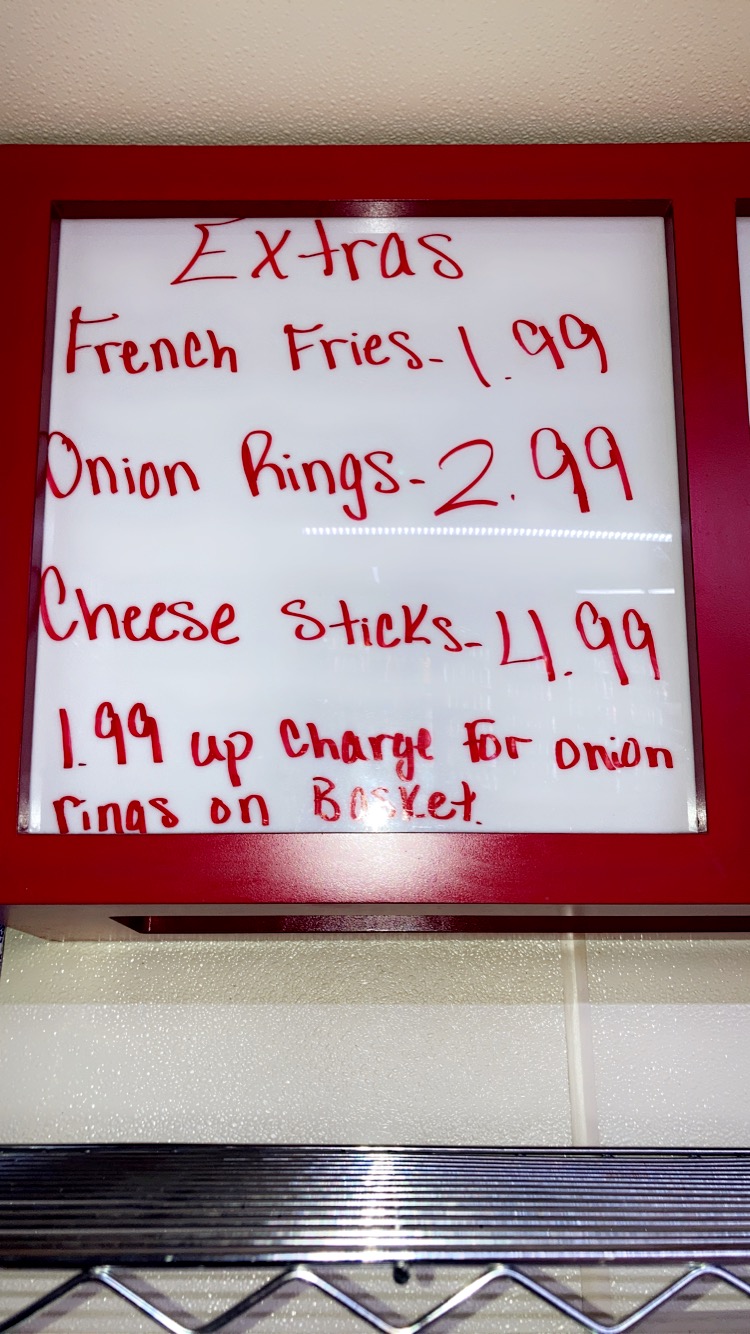 Extras
French Fries - 1.99
Onion Rings - 2.99
Cheese Sticks - 4.99
1.99 up Charge for onion
rings on Basket.